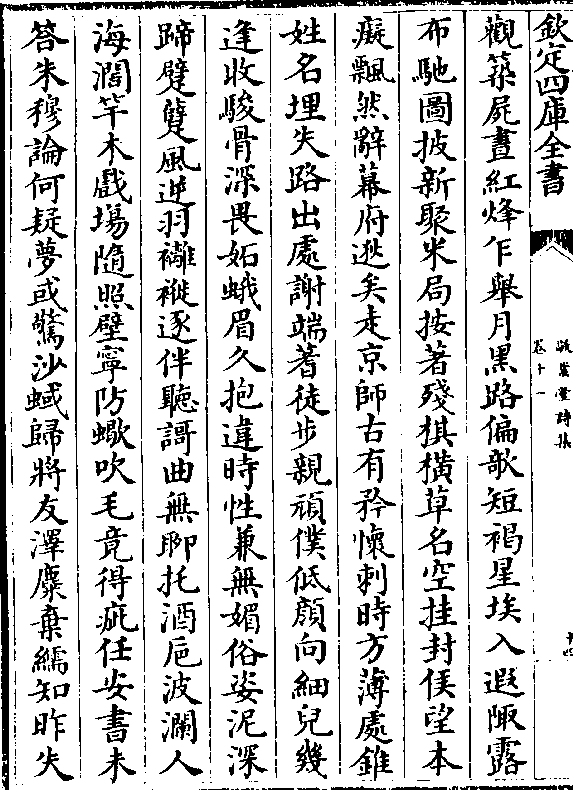 欽定四庫全書
卷十一
觀築屍晝紅烽乍舉月黑路偏欹短褐星埃入遐陬露
布馳圖披新聚米局按著殘棋橫草名空挂封侯望本
癡飄然辭幕府逝矣走京師古有矜懷刺時方薄處錐
姓名埋失路出處謝端蓍徒步親頑僕低顔向細兒幾
逢收駿骨深畏妬蛾眉久抱違時性兼無媚俗姿泥深
蹄躄躠風逆羽䙰褷逐伴聽謌曲無聊托酒巵波瀾人
海濶竿木戲場隨照壁寧防蠍吹毛竟得疵任安書未
答朱穆論何疑夢或驚沙蜮歸將友澤麋棄繻知昨失